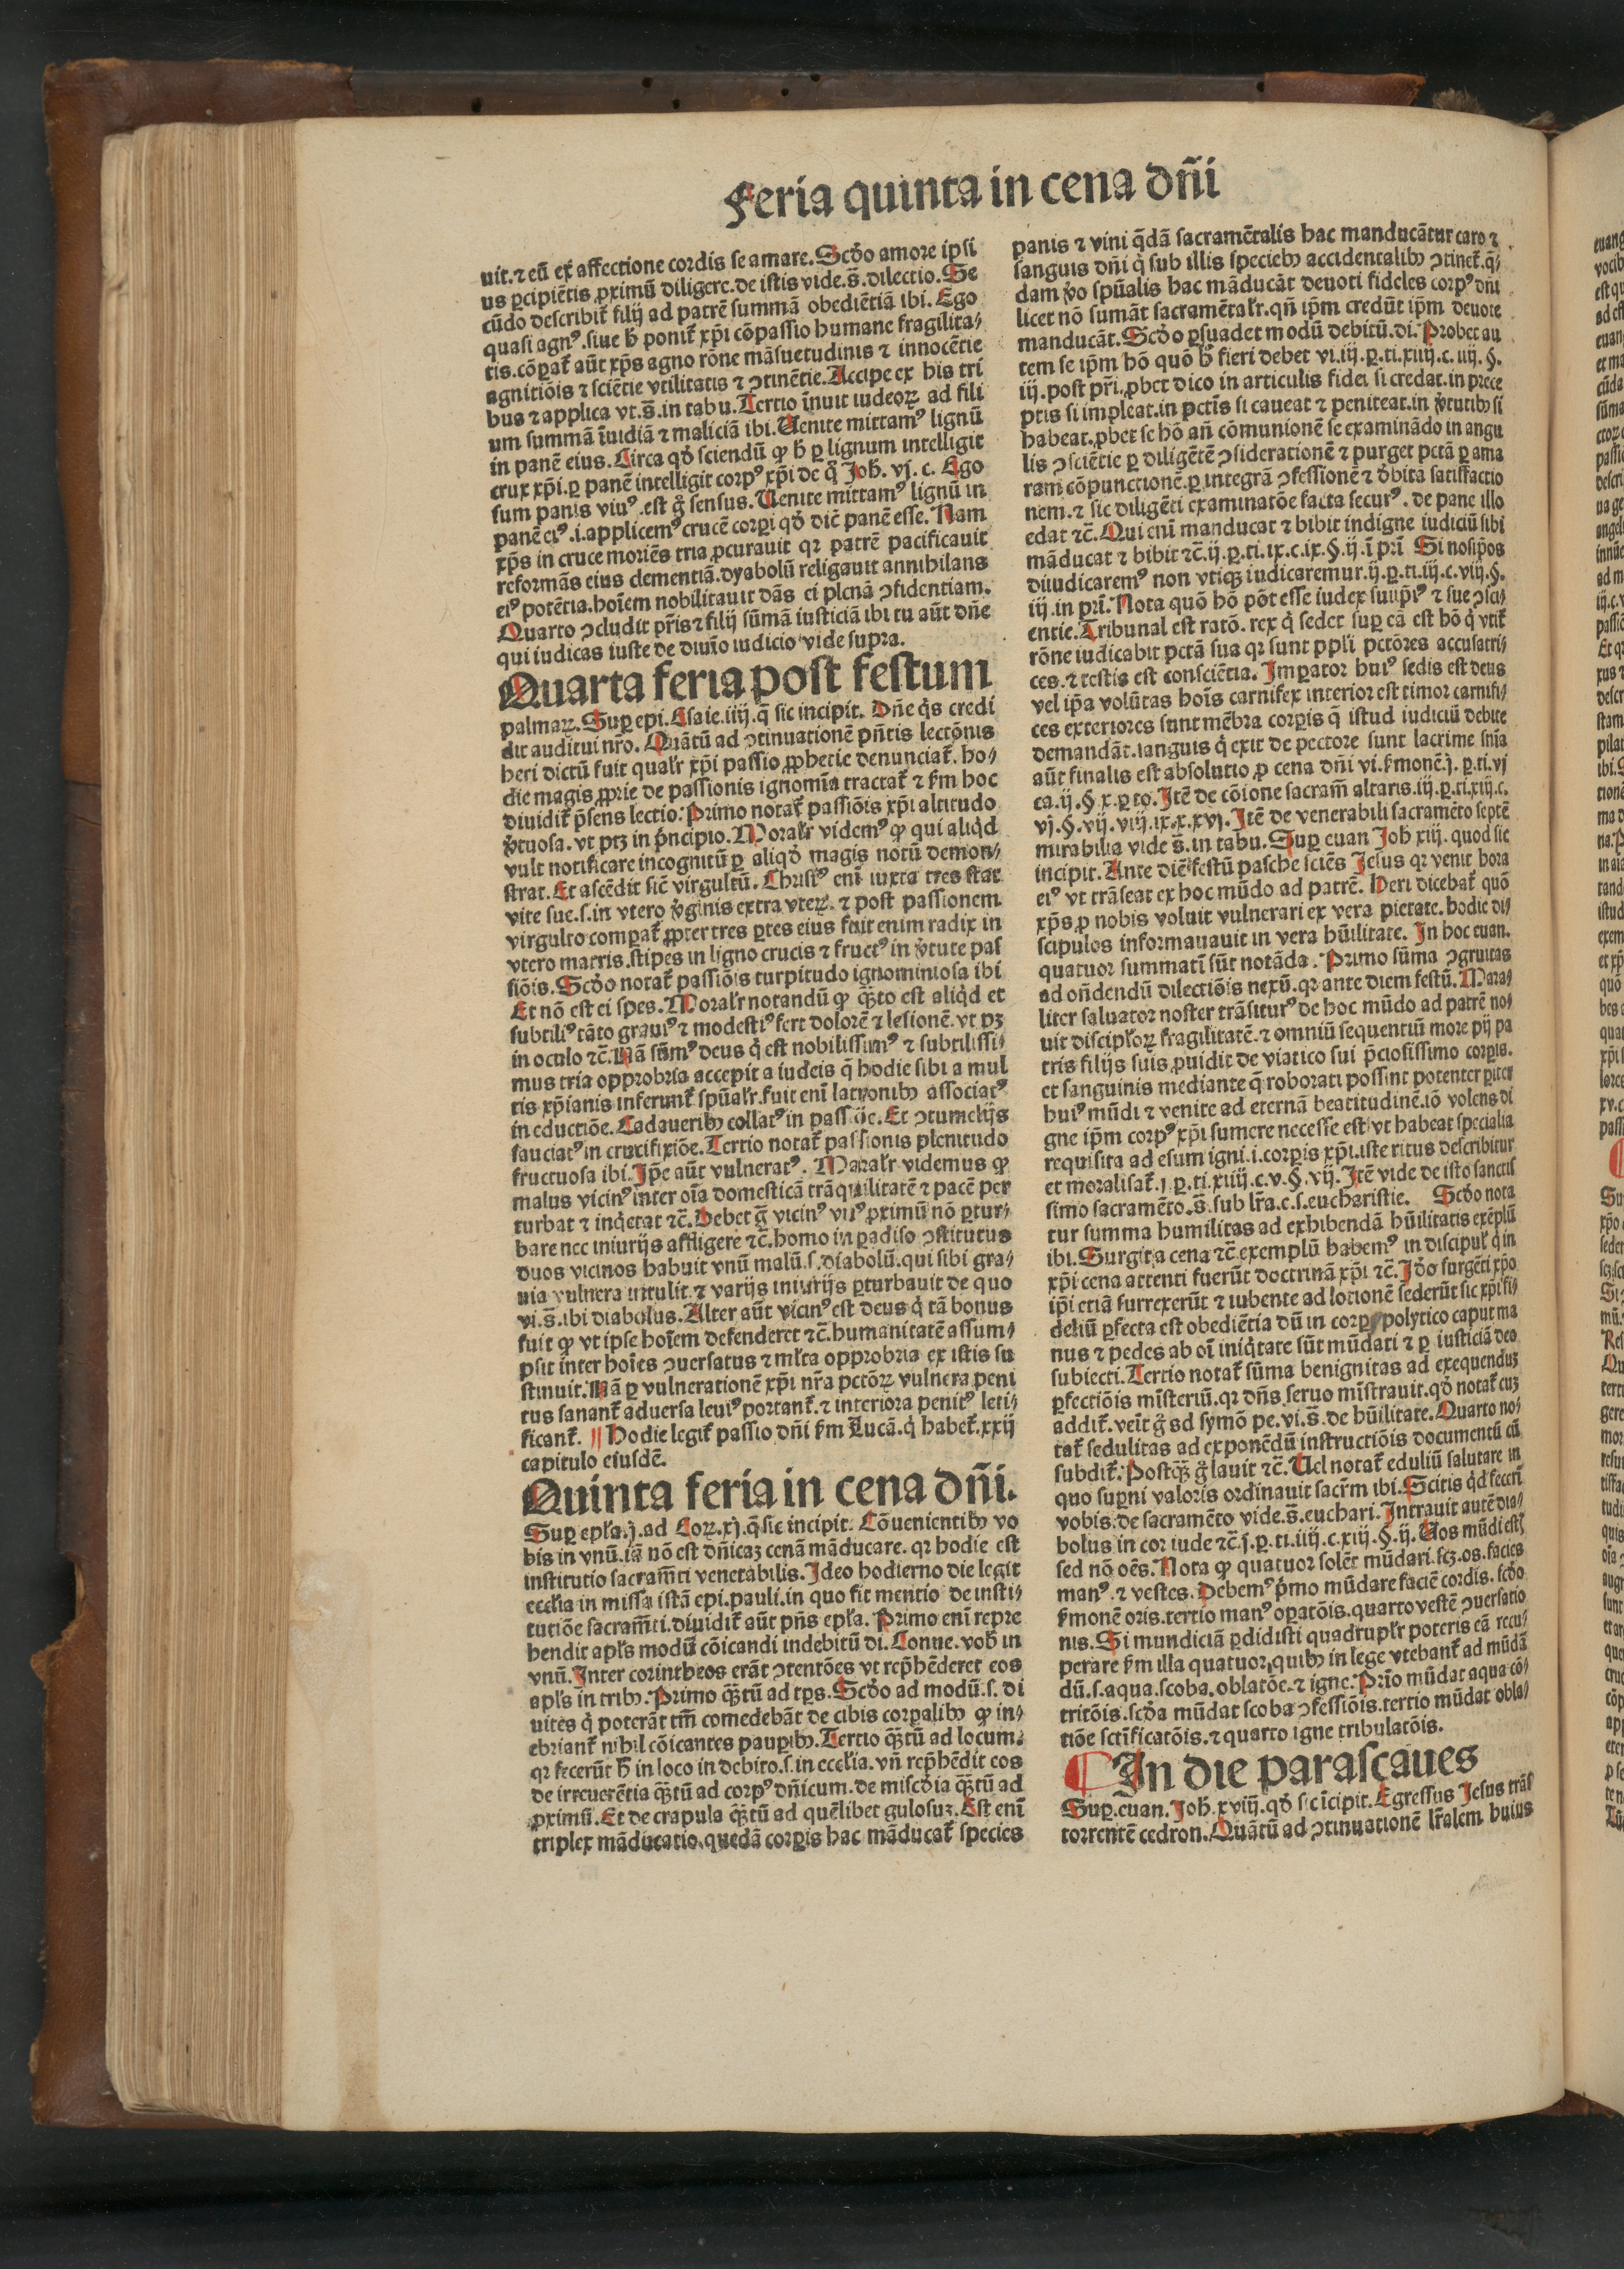 Feria quinta in cena dñi
uit. ⁊ eũ ex affectione cordis se amare. Scḋo amore ipsi
us ꝑcipiẽtis ꝓximũ diligere. de istis vide. s̄. dilectio. Se
cũdo describit᷑ filij ad patrẽ summã obediẽtiã ibi. Ego
quasi agnꝰ. siue h̄ ponit᷑ xp̄i cõpassio humane fragilita⸗
tis. cõꝑat᷑ aũt xp̄s agno rõne mãsuetudinis ⁊ innocẽtie
agnitiõis ⁊ sciẽtie vtilitatis ⁊ ꝯtinẽtie. Accipe ex his tri
bus ⁊ applica vt. s̄. in tabu. Tertio ĩnuit iudeoꝝ ad fili
um summã ĩuidiã ⁊ maliciã ibi. Uenite mittamꝰ lignũ
in panẽ eius. Circa qḋ sciendũ ꝙ h̄ ꝑ lignum intelligit
crux xp̄i. ꝑ panẽ intelligit corpꝰ xp̄i de q̊ Joh̄. vj. c. Ego
sum panis viuꝰ. est g̊ sensus. Uenite mittamꝰ lignũ in
panẽ eiꝰ .i. applicemꝰ crucẽ corꝑi qḋ dic̄ panẽ esse. Nam
xp̄s in cruce moriẽs tria ꝓcurauit qꝛ patrẽ pacificauit
reformãs eius clementiã. dyabolũ religauit annihilans
eiꝰ potẽtia. hoĩem nobilitauit dãs ei plenã ꝯfidentiam.
Quarto ꝯcludit pr̄is ⁊ filij sũmã iusticiã ibi tu aũt dñe
qui iudicas iuste de diuĩo iudicio vide supra.
Quarta feria post festum
palmaꝝ. Suꝑ epi. Esaie. iiij. q̄ sic incipit. Dñe q̇s credi
dit auditui nr̄o. Quãtũ ad ꝯtinuationẽ pñtis lectõnis
heri dictũ fuit qualr̄ xp̄i passio ꝓphetie denunciat᷑. ho⸗
die magis ꝓprie de passionis ignomĩa tractat᷑ ⁊ ẜm hoc
diuidit᷑ p̄sens lectio. Primo notat᷑ passiõis xp̄i altitudo
v̓tuosa. vt ptꝫ in p̓ncipio. Moralr̄ videmꝰ ꝙ qui aliq̇d
vult notificare incognitũ ꝑ aliqḋ magis notũ demon⸗
strat. Et ascẽdit sic̄ virgultũ. Christꝰ eñ iuxta tres stat
vite sue. s. in vtero v̓ginis extra vteꝝ. ⁊ post passionem
virgulto comꝑat᷑ ꝓpter tres ꝑtes eius fuit enim radix in
vtero matris. stipes in ligno crucis ⁊ fructꝰ in v̓tute pas
siõis. Scḋo notat᷑ passiõis turpitudo ignominiosa ibi
Et nõ est ei spes. Moralr̄ notandũ ꝙ q̃to est aliq̇d et
subtiliꝰ tãto grauiꝰ ⁊ modestiꝰ fert dolorẽ ⁊ lesionẽ. vt pꝫ
in oculo ⁊c̄. Nã sũmꝰ deus q̇ est nobilissimꝰ ⁊ subtilissi⸗
mus tria opprobria accepit a iudeis q̄ hodie sibi a mul
tis xp̄ianis inferunt᷑ spũalr̄. fuit eñ latronibꝫ associatꝰ
in eductiõe. Cadaueribꝫ collatꝰ in passiõe. Et ꝯtumelijs
sauciatꝰ in crucifixiõe. Tertio notat᷑ passionis plenitudo
fructuosa ibi. Ip̄e aũt vulneratꝰ. Moralr̄ videmus ꝙ
malus vicinꝰ inter oĩa domesticã trãquilitatẽ ⁊ pacẽ per
turbat ⁊ inq̇etat ⁊c̄. Debet g̅ vicinꝰ viꝰ ꝓximũ nõ ꝑtur⸗
bare nec iniurijs affligere ⁊c̄. homo in paradiso ꝯstitutus
duos vicinos habuit vnũ malũ. s. diabolũ. qui sibi gra⸗
uia vulnera intulit. ⁊ varijs iniurijs ꝑturbauit de quo
vi. s̄. ibi diabolus. Alter aũt vicinꝰ est deus q̇ tã bonus
fuit ꝙ vt ipse hoĩem defenderet ⁊c̄. humanitatẽ assum⸗
psit inter hoĩes ꝯuersatus ⁊ ml̄ta opprobria ex istis su
stinuit. Nã ꝑ vulnerationẽ xp̄i nr̄a pctõꝝ vulnera peni
tus sanant᷑ aduersa leuiꝰ portant᷑. ⁊ interiora penitꝰ leti⸗
ficant᷑. Hodie legit᷑ passio dñi ẜm Lucã. q̇ habet᷑. xxij
capitulo eiusdẽ.
Quinta feria in cena dñi.
Suꝑ epl̄a. j. ad Coꝝ. xj. q̄ sic incipit. Cõuenientibꝫ vo
bis in vnũ. iã nõ est dñicaꝫ cenã mãducare. qꝛ hodie est
institutio sacram̄ti venerabilis. Ideo hodierno die legit
eccl̄ia in missa istã epi. pauli. in quo fit mentio de insti⸗
tutiõe sacram̄ti. diuidit᷑ aũt pñs epl̄a. Primo eñ repre
hendit apl̄s modũ cõicandi indebitũ di. Conue. vob̄ in
vnũ. Inter corintheos erãt ꝯtentões vt rep̄hẽderet eos
apl̄s in tribꝫ. Primo q̃tũ ad tꝑs. Scḋo ad modũ. s. di
uites q̇ poterãt tm̄ comedebãt de cibis corꝑalibꝫ ꝙ in⸗
ebriant᷑ nihil cõicantes pauꝑibꝫ. Tertio q̃tũ ad locum.
qꝛ fecerũt h̄ in loco in debito. s. in eccl̄ia. vñ rep̄hẽdit eos
de irreuerẽtia q̃tũ ad corpꝰ dñicum. de misc̄dia q̃tũ ad
ꝓximũ. Et de crapula q̃tũ ad quẽlibet gulosuꝫ. Est eñ
triplex mãducatio. quedã corꝑis hac mãducat᷑ species
panis ⁊ vini q̄dã sacramẽtalis hac manducãtur caro ⁊
sanguis dñi q̇ sub illis speciebꝫ accidentalibꝫ ꝯtinet᷑. q̄⸗
dam v̓o spũalis hac mãducãt deuoti fideles corpꝰ dñi
licet nõ sumãt sacramẽtalr̄. qñ ip̄m credũt ip̄m deuote
manducãt. Scḋo ꝑsuadet modũ debitũ. di. Probet au
tem se ip̄m hõ quõ h̄ fieri debet vi. iij. ꝑ. ti. xiiij. c. iij. §.
iij. post pr̄i. ꝓbet dico in articulis fidei si credat. in prece
ptis si impleat. in pctĩs si caueat ⁊ peniteat. in v̓tutibꝫ si
habeat. ꝓbet se hõ añ cõmunionẽ se examinãdo in angu
lis ꝯsciẽtie ꝑ diligẽtẽ ꝯsiderationẽ ⁊ purget pctã ꝑ ama
ram cõpunctionẽ. ꝑ integrã ꝯfessionẽ ⁊ ḋbitã satisfactio
nem. ⁊ sic diligẽti examinatõe facta securꝰ. de pane illo
edat ⁊c̄. Qui eñ manducat ⁊ bibit indigne iudiciũ sibi
mãducat ⁊ bibit ⁊c̄. ij. ꝑ. ti. ix. c. ix. §. ij. ĩ pr̄i. Si nosip̄os
diiudicaremꝰ non vtiqꝫ iudicaremur. ij. ꝑ. ti. iij. c. viij. §.
iij. in pr̄i. Nota quõ hõ põt esse iudex suiip̄iꝰ ⁊ sue ꝯsci⸗
entie. Tribunal est ratõ. rex q̇ sedet suꝑ eã est hõ q̇ vtit᷑
rõne iudicabit pctã sua qꝛ sunt ppl̄i pctõres accusatri⸗
ces. ⁊ testis est consciẽtia. Imꝑator huiꝰ sedis est deus
vel ip̄a volũtas hoĩs carnifex interior est timor carnifi⸗
ces exteriores sunt mẽbra corꝑis q̄ istud iudiciũ debite
demandãt. sanguis q̇ exit de pectore sunt lacrime sñia
aũt finalis est absolutio ꝓ cena dñi vi. ẜmonẽ. j. ꝑ. ti. vj
ca. ij. § x. ꝑ to. Itẽ de cõione sacram̄ altaris. iij. ꝑ. ti. xiij. c.
vj. §. vij. viij. ix. x. xvj. Itẽ de venerabili sacramẽto septẽ
mirabilia vide s̄. in tabu. Suꝑ euan Joh̄ xiij. quod sic
incipit. Ante diẽ festũ pasche sciẽs Jesus qꝛ venit hora
eiꝰ vt trãseat ex hoc mũdo ad patrẽ. Heri dicebat᷑ quõ
xp̄s ꝓ nobis voluit vulnerari ex vera pietate. hodie di⸗
scipulos informauauit in vera hũilitate. In hoc euan.
quatuor summatĩ sũt notãda. Primo sũma ꝯgruitas
ad oñdendũ dilectiõis nexũ. qꝛ ante diem festũ. Mora⸗
liter saluator noster trãsiturꝰ de hoc mũdo ad patrẽ no⸗
uit discipl̄oꝝ fragilitatẽ. ⁊ omniũ sequentiũ more pij pa
tris filijs suis ꝓuidit de viatico sui p̄ciosissimo corꝑis.
et sanguinis mediante q̄ roborati possint potenter ꝑiter
huiꝰ mũdi ⁊ venire ad eternã beatitudinẽ. iõ volens di
gne ip̄m corpꝰ xp̄i sumere necesse est vt habeat specialia
requisita ad esum igni. i. corꝑis xp̄i. iste ritus describitur
et moralisat᷑. j ꝑ. ti. xiiij. c. v. §. vij. Itẽ vide de isto sanctis
simo sacramẽto. s̄. sub lr̄a. e. s. eucharistie. Scḋo nota
tur summa humilitas ad exhibendã hũilitatis exẽplũ
ibi. Surgit a cena ⁊c̄. exemplũ habemꝰ in discipul̄ q̇ in
xp̄i cena attenti fuerũt doctrinã xp̄i ⁊c̄. Iḋo surgẽti xp̄o
ip̄i etiã surrexerũt ⁊ iubente ad lotionẽ sederũt sic xp̄i fi⸗
deliũ ꝑfecta est obediẽtia dũ in corꝑe polytico caput ma
nus ⁊ pedes ab oĩ iniq̇tate sũt mũdati ⁊ ꝑ iusticiã deo
subiecti. Tertio notat᷑ sũma benignitas ad exequenduꝫ
ꝑfectiõis mĩsteriũ. qꝛ dñs seruo mĩstrauit. qḋ notat᷑ cuꝫ
addit᷑. veĩt g̊ sd symõ pe. vi. s̄. de hũilitate. Quarto no⸗
tat᷑ sedulitas ad exponẽdũ instructiõis documentũ cũ
subdit᷑. Postq̃ꝫ g̊ lauit ⁊c̄. Uel notat᷑ eduliũ salutare in
quo suꝑni valoris ordinauit sacr̄m ibi. Scitis q̇d fecerĩ
vobis. de sacramẽto vide. s̄. euchari. Intrauit autẽ dia⸗
bolus in cor iude ⁊c̄. j. ꝑ. ti. iiij. c. xiij. §. ij. Uos mũdi estꝭ
sed nõ oẽs. Nota ꝙ quatuor solẽt mũdari. sꝫ. os. facies
manꝰ. ⁊ vestes. Debemꝰ p̓mo mũdare faciẽ cordis. scḋo
ẜmonẽ oris. tertio manꝰ oꝑatõis. quarto vestẽ ꝯuersatio
nis. Si mundiciã ꝑdidisti quadruplr̄ poteris eã recu⸗
perare ẜm illa quatuor, quibꝫ in lege vtebant᷑ ad mũdã
dũ. s. aqua. scoba. oblatõe. ⁊ igne. Prĩo mũdat aqua cõ⸗
tritõis. scḋa mũdat scoba ꝯfessiõis. tertio mũdat obla⸗
tiõe sctĩficatõis. ⁊ quarto igne tribulatõis.
¶ In die parasçaues
Suꝑ. euan. Joh̄. xviij. qḋ sic ĩcipit. Egressus Jesus trãs
torrentẽ cedron. Quãtũ ad ꝯtinuationẽ lr̄alem huius